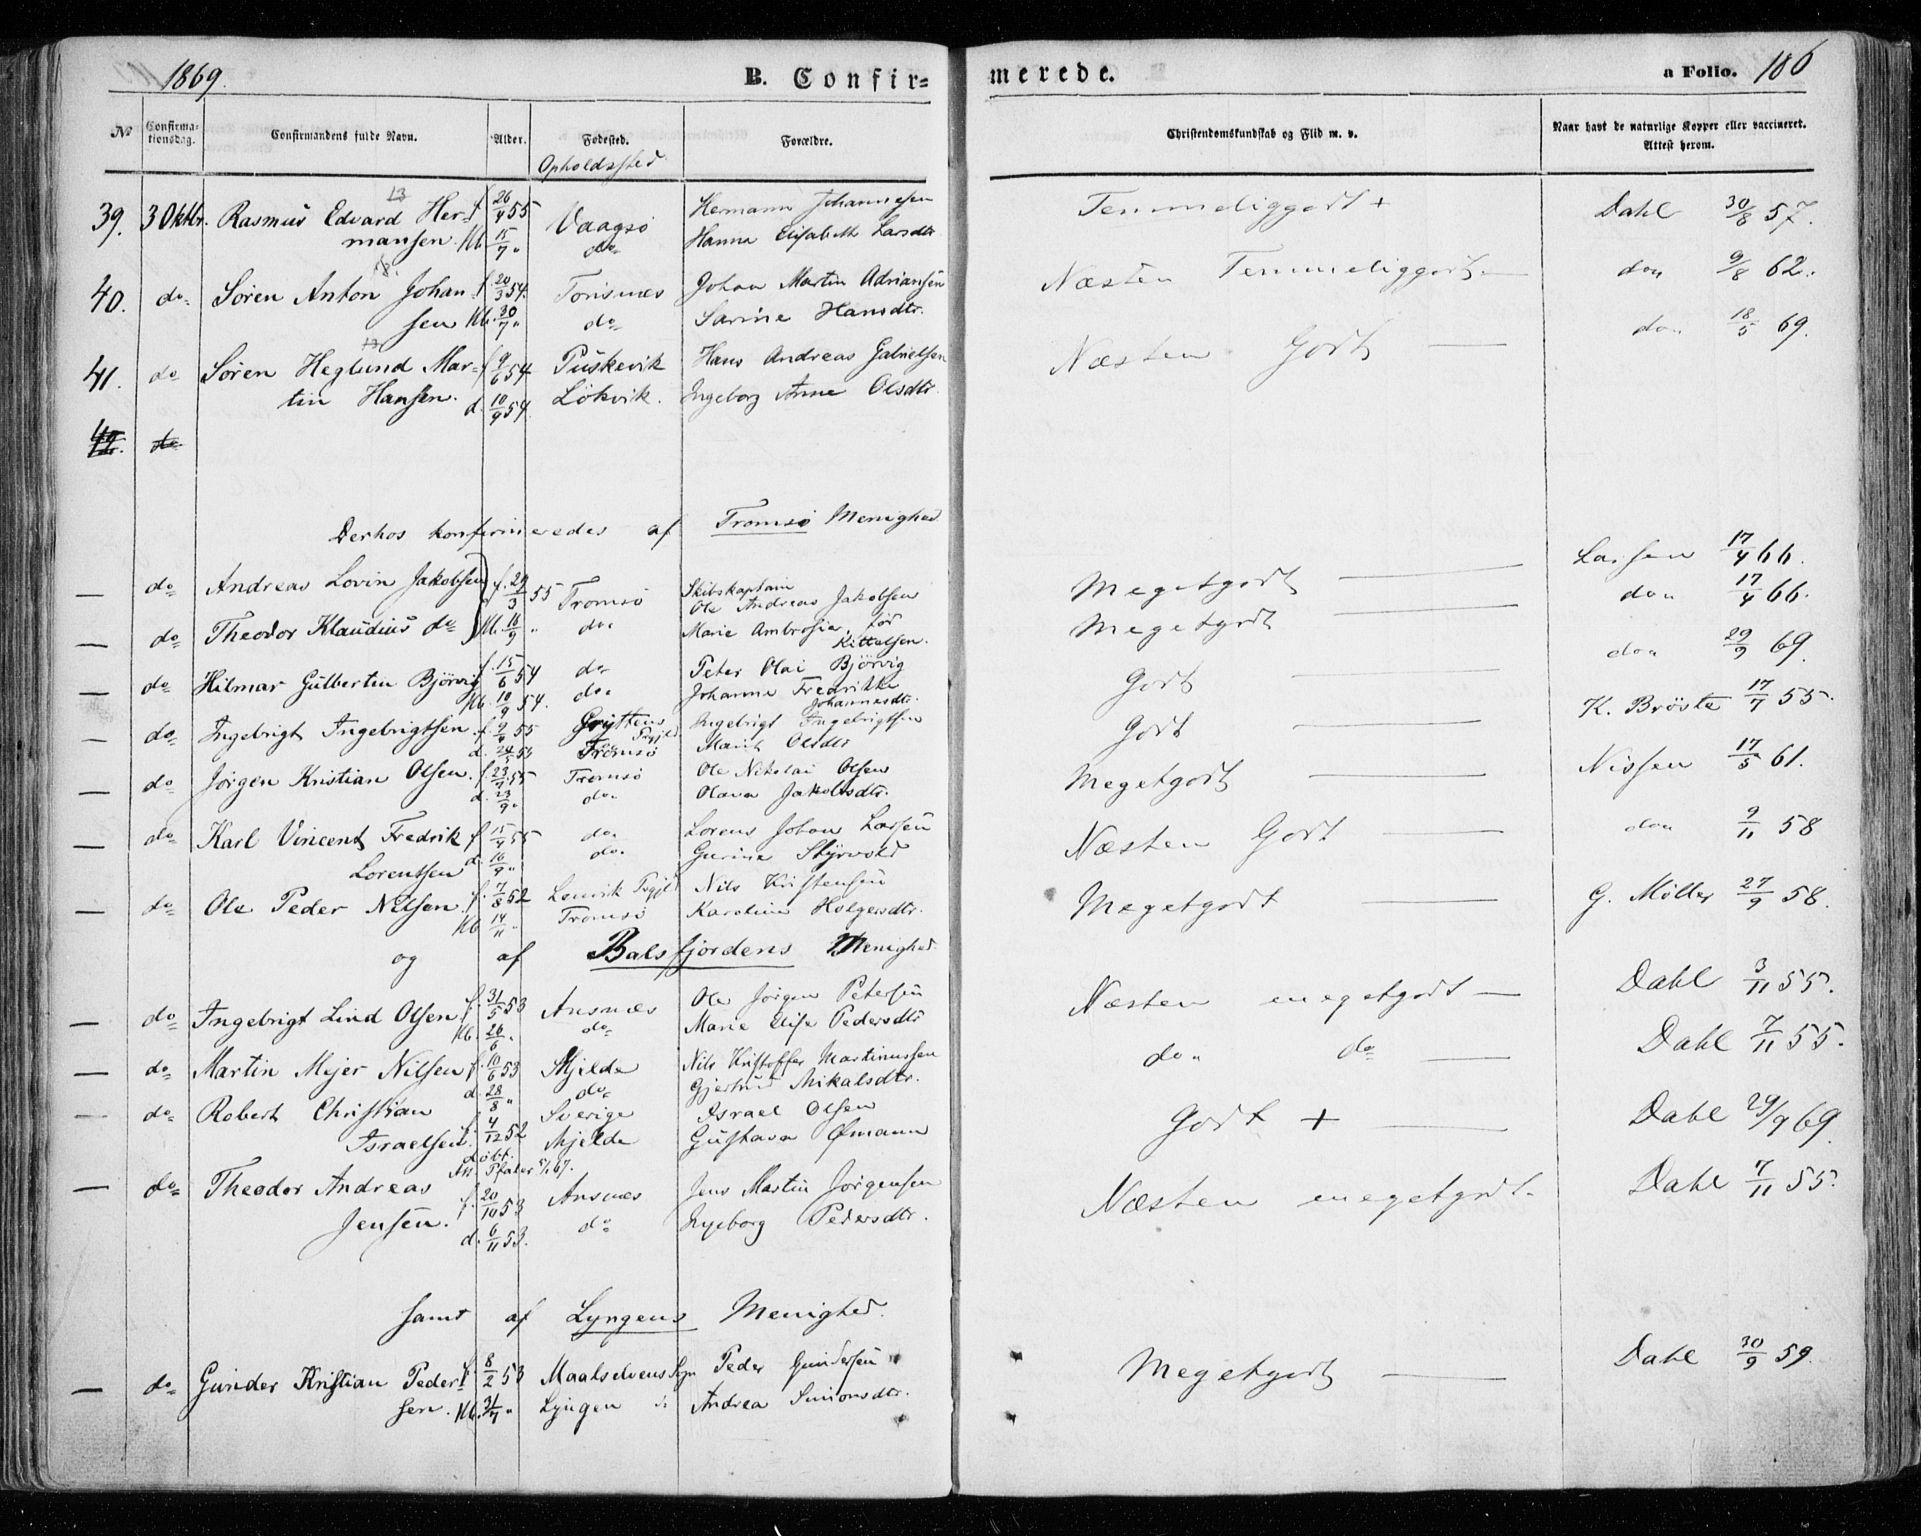 1869.
B. Confir=
merede.
a Folio. 186
No
Confirma-
tionsdag.
Confirmandens fulde Navn.
Alder.
Fødested.
Opholdssted
Forældre.
Christendomskundskab og Flid m. v.
Naar havt de naturlige Kopper eller vaccineret.
Attest herom.
13
39. 3 Oktbr. Rasmus Edvard Her- f. 26/4 55 Vaagsø Hermann Johannesen Temmeliggodt + Dahl 30/8 57.
mansen. Hb 15/7 " do Hanna Elisabeth Larsdtr
40. do Søren Anton Johan- f. 20/3 54. Torisnæs Johan Martin Adriansen Næsten Temmeliggodt — do 9/8 62.
sen Hb. 30/7 " do Sarine Hansdtr.
13
41. do Søren Heglund Mar- f. 9/6 54 Puskevik Hans Andreas Gabrielsen Næsten Godt — do 18/5 69.
tin Hansen. d. 10/9 54. Lökvik. Ingeborg Anne Olsdtr.
42. do
Derhos konfirmeredes af Tromsø Menighed
— do Andreas Lovin Jakobsen f. 29/3 55 Tromsø Skibskaptain Megetgodt — Lassen 17/4 66.
Ole Andreas Jakobsen
— do Theodor Klaudius do Hb. 16/9 " do Marie Ambrosia, før Megetgodt — do 17/4 66.
Kittelsen.
— do Hilmar Gulbertin Bjørvig f. 15/6 54 do Peter Olai Bjørvig Godt — do 29/9 69.
Hb. 10/9 54. do Johanne Fredrikke
Johannesdtr.
— do Ingebrigt Ingebrigtsen f. 9/4 55 Gryttens Prgjld Ingebrigt Ingebrigtsen Godt — K. Bröste 17/7 55.
d. 24/5 55 Tromsø Marit Olsdtr
— do Jørgen Kristian Olsen. f. 23/7 55 Tromsø Ole Nikolai Olsen Megetgodt — Nissen 17/5 61.
d. 23/9 " do Olava Jakobsdtr.
— do Karl Vincent Fredrik f. 15/4 55 do Lorens Johan Larsen Næsten Godt — do 9/11 58
Lorentsen d. 16/9 " do Gurine Styrvold
— do Ole Peder Nilsen f. 7/8 52 Lenvik Prgjld Nils Kristensen Megetgodt — G. Møller 27/9 58.
Hb 14/11 " Tromsø Karoline Holgersdtr.
og af Balsfjordens Menighed
— do Ingebrigt Lind Olsen f. 31/5 53 Ansnæs Ole Jørgen Petersen Næsten megetgodt — Dahl 3/11 55.
Hb. 26/6 " do Marie Elise Pedersdtr
— do Martin Mejer Nilsen f. 10/6 53 Mjelde Nils Kristoffer Martinussen do do — Dahl 7/11 55.
d. 28/8 " do Gjertrud Mikalsdtr.
— do Robert Christian Sverige Israel Olsen Godt + — Dahl 29/9 69.
Israelsen f. 4/12 52 Mjelde Gustava Ømann
døbt.
— do Theodor Andreas f. 20/10 53 Ansnæs Jens Martin Jørgensen Næsten megetgodt. Dahl 7/11 55.
Jensen. d. 6/11 53. do Ingeborg Pedersdtr.
samt af Lyngens Menighed.
— do Gunder Kristian Peder- f. 8/2 53 Maalselvens Sgn Peder Gundersen Megetgodt — Dahl 30/9 59.
sen. Hb. 31/7 " Lyngen Andrea Simonsdtr.